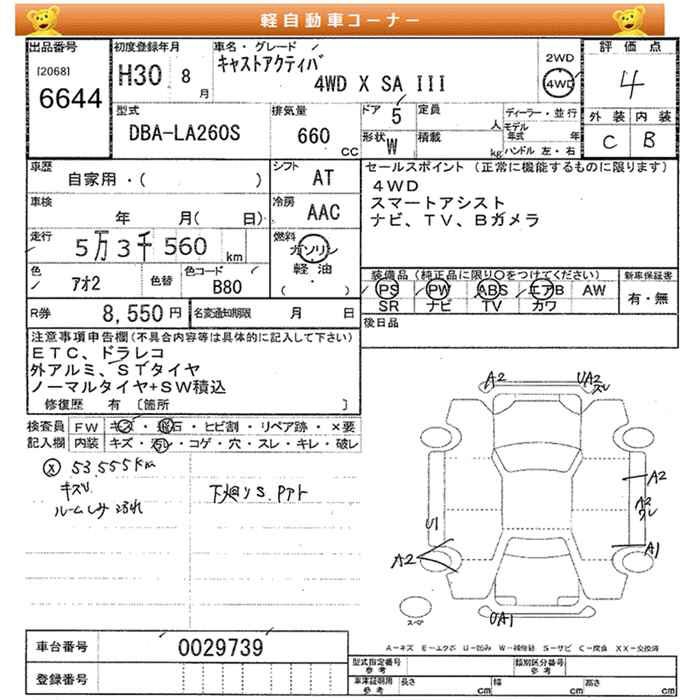 軽自動車コーナー
出品番号 初度登録年月 車名・グレード 2WD 評価点
[2068] キャストアクティバ
6644 H30 8月 4WD X SA III 4WD 4
型式 排気量 ドア 定員 ディーラー・並行 外装 内装
DBA-LA260S 660 CC 5 人 モデル年式 年 C B
形状 W 積載 kg ハンドル 左・右
車歴 シフト セールスポイント (正常に機能するものに限ります)
自家用・( ) AT 4WD
車検 冷房 スマートアシスト
年 月( 日) AAC ナビ、TV、Bガメラ
走行 燃料
5万3千560km ガソリン
軽油
( )
色 色替 色コード 装備品(純正品に限り○をつけてください) 新車保証書
アオ2 B80 PS PW ABS エアB AW 有・無
SR ナビ TV カワ
R券 8,550円 名変通知期限 月 日 後日品
注意事項申告欄(不具合内容等は具体的に記入して下さい)
ETC、ドラレコ
外アルミ、STタイヤ
ノーマルタイヤ+SW積込
修復歴 有 [箇所 ]
検査員 FW キズ・飛石・ヒビ割・リペア跡・×要
記入欄 内装 キズ・汚レ・コゲ・穴・スレ・キレ・破レ
ⓧ 53,555km
キズU
ルームしサヨゴれ
下廻りS.Pアト
A2 UA2 スレ
A2
A2 ワレ
U1
A2 A1
スペア UA1
A-キズ E-エクボ U-凹み W-補修跡 S-サビ C-腐食 XX-交換済
車台番号 0029739
型式指定番号 参考 類別区分番号 参考
登録番号 車庫証明用 参考 長さ cm 幅 cm 高さ cm